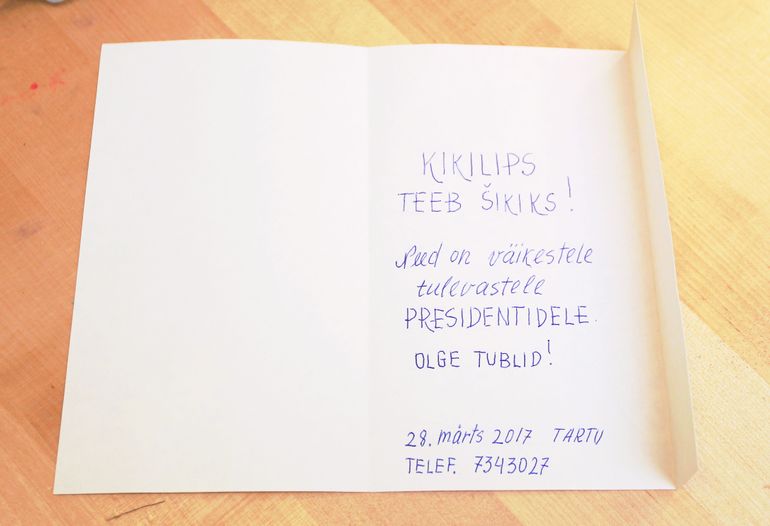 KIKILIPS
TEEB ŠIKIKS!
Need on väikestele
tulevastele
PRESIDENTIDELE.
OLGE TUBLID!
28. märts 2017 TARTU
TELEF. 7343027